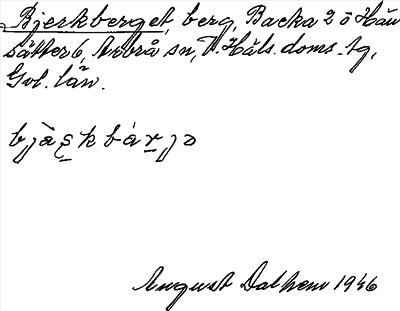 Bjerkberget, berg, Backa 2 ö Hån
sätter 6, Arbrå sn, V. Häls. doms.-tg,
Gvl. län.
August Dalhem 1946